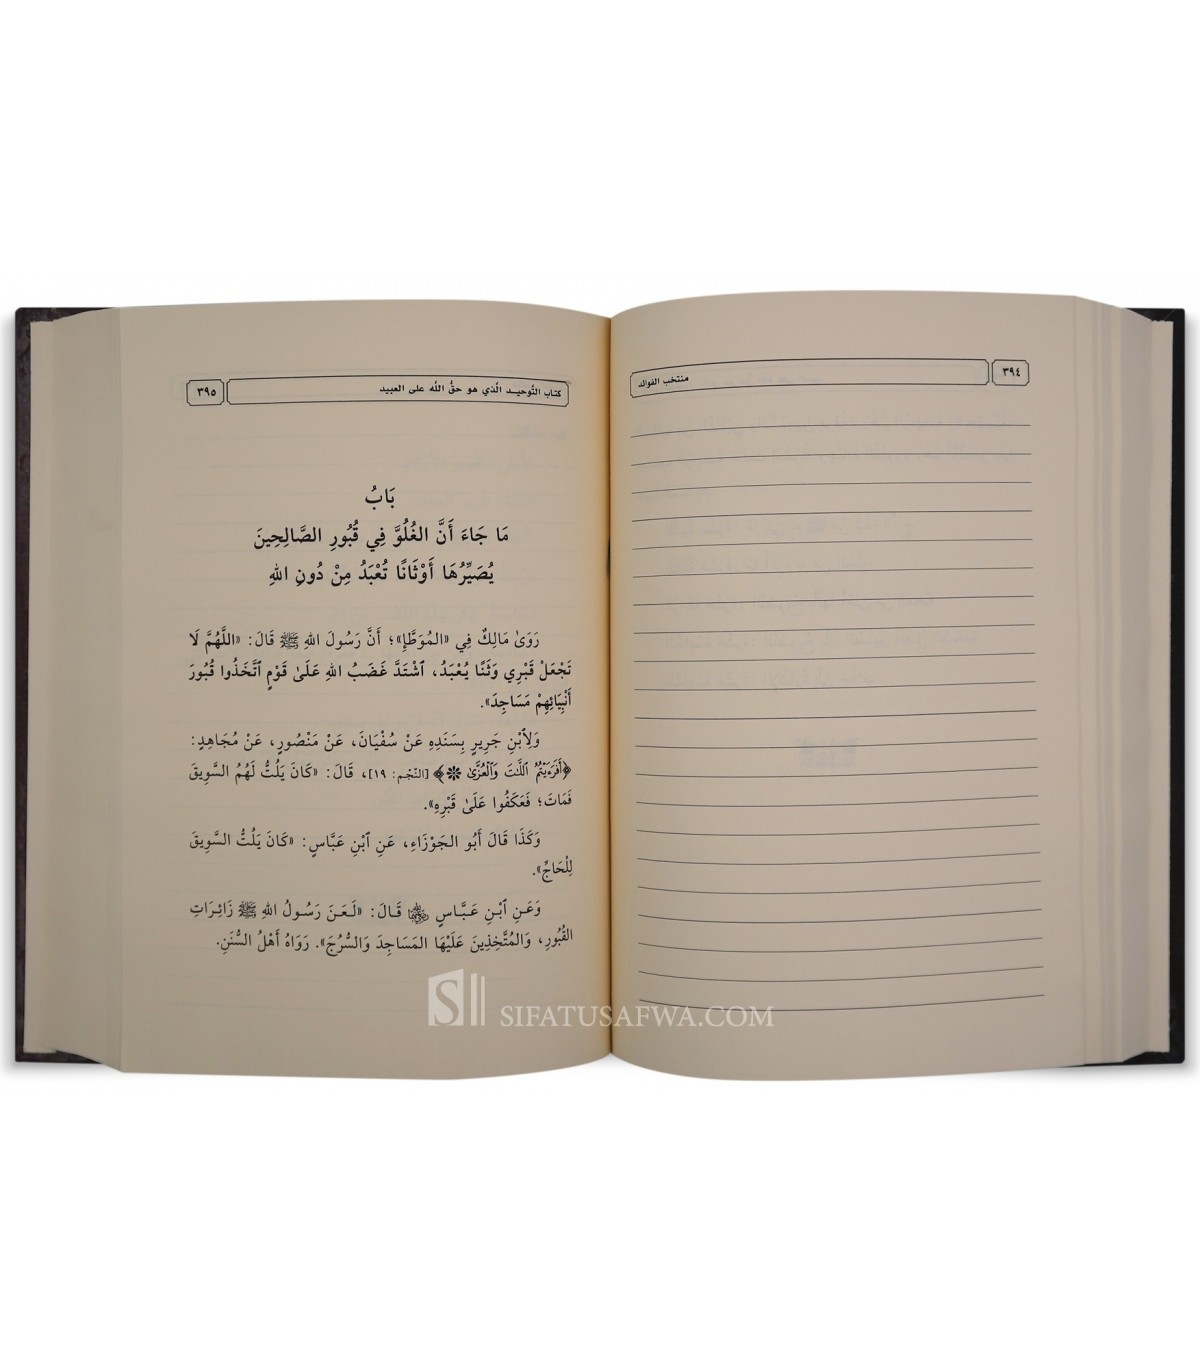 ٣٩٤
منتخب الفوائد
كتاب التَّوحيـد الَّذي هو حقُّ اللَّه على العبيد
٣٩٥
بَابُ
مَا جَاءَ أَنَّ الغُلُوَّ فِي قُبُورِ الصَّالِحِينَ
يُصَيِّرُهَا أَوْثَانًا تُعْبَدُ مِنْ دُونِ اللهِ
رَوَىٰ مَالِكٌ فِي «المُوَطَّإِ»؛ أَنَّ رَسُولَ اللهِ ﷺ قَالَ: «اللَّهُمَّ لَا
تَجْعَلْ قَبْرِي وَثَنًا يُعْبَدُ، ٱشْتَدَّ غَضَبُ اللهِ عَلَىٰ قَوْمٍ ٱتَّخَذُوا قُبُورَ
أَنْبِيَائِهِمْ مَسَاجِدَ».
وَلِٱبْنِ جَرِيرٍ بِسَنَدِهِ عَنْ سُفْيَانَ، عَنْ مَنْصُورٍ، عَنْ مُجَاهِدٍ:
﴿أَفَرَءَيْتُمُ ٱللَّٰتَ وَٱلْعُزَّىٰ ۝﴾ [النَّجْم: ١٩]، قَالَ: «كَانَ يَلُتُّ لَهُمُ السَّوِيقَ
فَمَاتَ؛ فَعَكَفُوا عَلَىٰ قَبْرِهِ».
وَكَذَا قَالَ أَبُو الجَوْزَاءِ، عَنِ ٱبْنِ عَبَّاسٍ: «كَانَ يَلُتُّ السَّوِيقَ
لِلْحَاجِّ».
وَعَنِ ٱبْنِ عَبَّاسٍ رضي الله عنهما قَالَ: «لَعَنَ رَسُولُ اللهِ ﷺ زَائِرَاتِ
القُبُورِ، وَالمُتَّخِذِينَ عَلَيْهَا المَسَاجِدَ وَالسُّرُجَ». رَوَاهُ أَهْلُ السُّنَنِ.
SIFATUSAFWA.COM